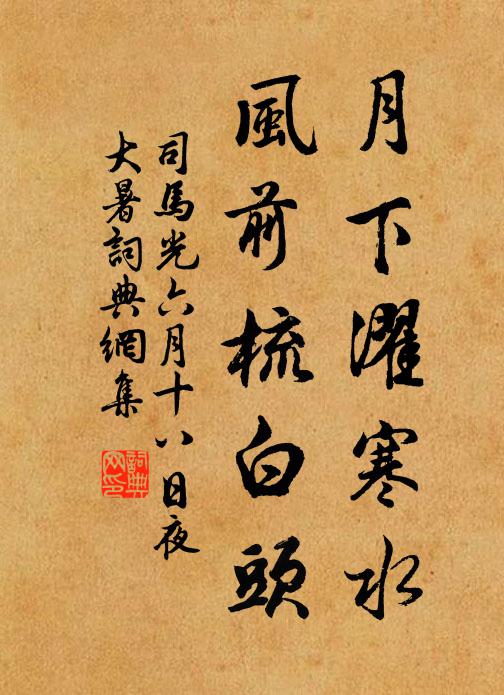 月下濯寒水
風前梳白頭
司馬光六月十八日夜
大暑詞典網集
詞典
网印